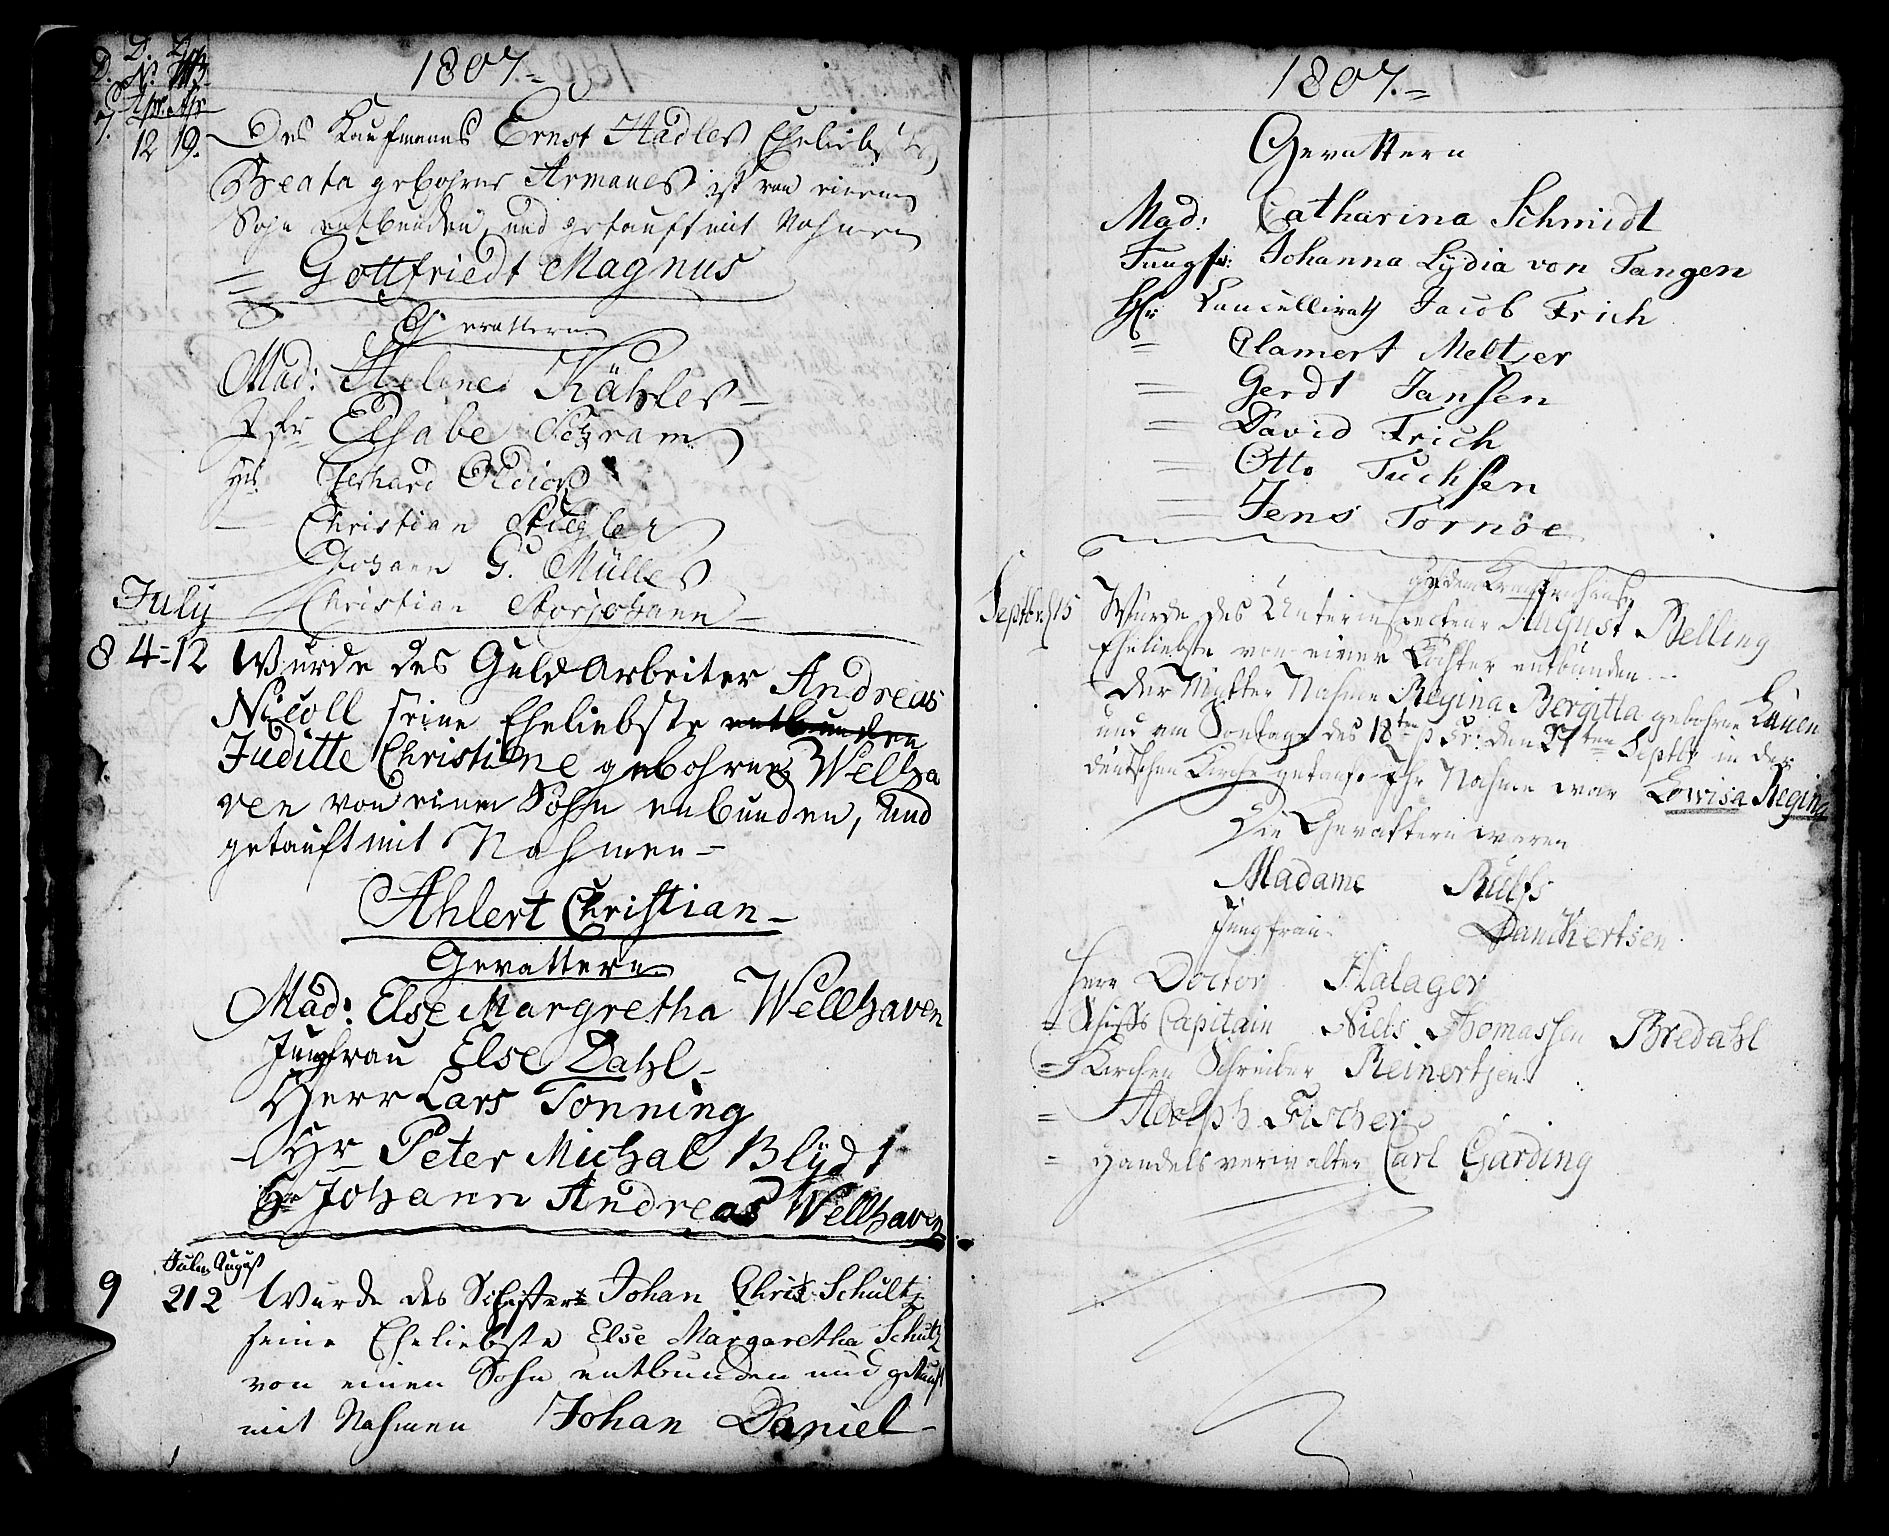 1807.=
D. N. T.
Apr. Apr
7. 12 19. Des Kaufmanns Ernst Hadler Eheliebste
Beata gebohrne Armauer ist von einem
Sohn entbunden, und getauft mit Nahmen
= Gottfriedt Magnus
Gevattern
Mad: Helene Kähler –
Jfr Elsabe Schram
Hr. Gerhard
– Christian Stiegler
Johann G. Müller
Christian Storjohann –
July
8 4=12 Wurde des Guldarbeiter Andreas
Nicoll seine Eheliebste entbunden
Juditte Christine gebohrne Wellha
ven von einen Sohn enbunden, und
getauft mit Nahmen –
Ahlert Christian –
Gevattern
Mad: Else Margretha Wellhaven
Jungfrau Else Dahl –
Herr Lars Tonning
– Hr Peter Michal Blÿdt
Hr Johann Andreas Wellhaven
Julii August
9 21 2 Wurde des Schiffers Johan Christ: Schultz
seine Eheliebste Else Margaretha Schultz
von einen Sohn entbunden und getauft
mit Nahmen Johan Daniel –
1807.=
Gevattern
Mad: Catharina Schmidt
Jungfr: Johanna Lÿdia von Tangen
Hr Cancellirath Jacob Frich
= Clamert Meltzer
= Gerdt Jansen
= David Frich
= Otto Tuchsen
= Jens Tornöe
Septbr 15 Wurde des Unterinspecteur August Belling
Eheliebste von einer Tochter entbunden –
Der Mutter Nahme Regina Bergitta gebohrne Kauen
und am Sontage des 18ten p Tr: den 27ten Septbr in der
deutschen Kirche getauft Ihr Nahme war Lowisa Regina
Die Gevattern waren
Madame Rulfs
Jungfrau Danckertsen
Herr Doctor Halager
= Schiffs Capitain Niels Thomassen Bredahl
= Kirchen Schreiber Reinertsen
= Adolph Fischer
= Handelsverwalter Carl Garding